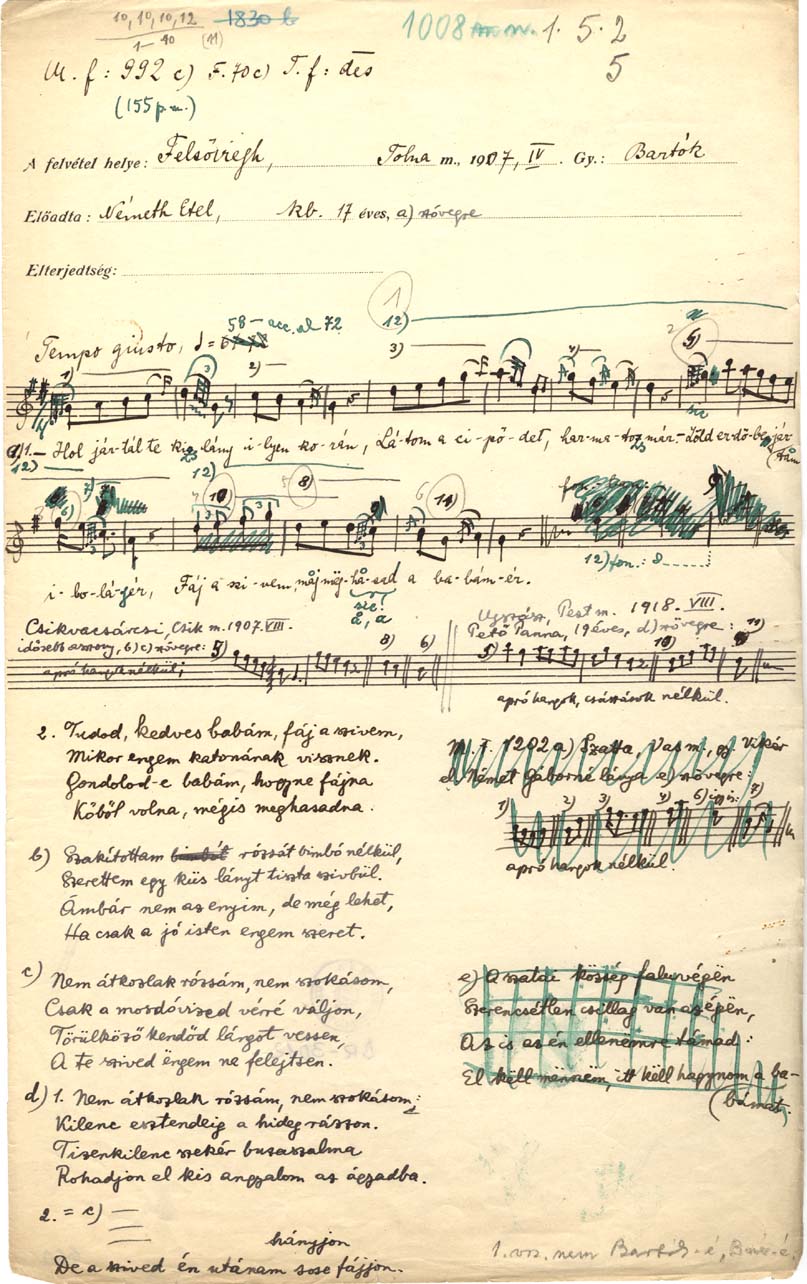 10, 10, 10, 12
1830 b
1–10 (11)
1008 1. 5. 2
5
M. f: 992 c) F. 70 c) T. f: des
(155 p.m.)
A felvétel helye: Felsőiregh, Tolna m., 1907, IV. Gy.: Bartók
Előadta: Németh Etel, kb. 17 éves, a) szövegre
Elterjedtség:
1
58 – acc. al 72
12)
Tempo giusto,
1) 2) 3) 4) 5)
a) 1. – Hol jártál te kis lány i-lyen ko-rán, Lá-tom a ci-pő-det, har-ma-tos már, – Zöld er-dő-be jár-
(tam
12) 12)
6) 7) 10) 8) 14) 9)
12) fon.: 8
i-bo-lá-jér, Fáj a szi-vem, máj mëg-há-sad a ba-bám-ér.
sic!
å, a
Csikvacsárcsi, Csik m. 1907. VIII.
idősebb asszony, b) c) szövegre: 5) 8) 6)
apró hangok nélkül;
Ujszász, Pest m. 1918. VIII.
Pető Panna, 19 éves, d) szövegre:
5) 10) 11)
apró hangok, csúszások nélkül.
2. Tudod, kedves babám, fáj a szivem,
Mikor engem katonának visznek.
Gondolod-e babám, hogyne fájna
Kőből volna, mégis meghasadna.
M. F. 1202 a) Szatta, Vas m., gy. Vikár
el. Német Gáborné lánya e) szövegre:
1) 2) 3) 4) 6) 7)
apró hangok nélkül.
b) Szakítottam bimbót rózsát bimbó nélkül,
Szerettem egy kis lányt tiszta szivbül.
Ámbár nem az enyim, de még lehet,
Ha csak a jó isten engem szeret.
c) Nem átkozlak rózsám, nem szokásom,
Csak a mosdóvized vérré váljon,
Törülköző kendőd lángot vessen,
A te szived éngem ne felejtsen.
d) 1. Nem átkozlak rózsám, nem szokásom:
Kilenc esztendeig a hideg rázzon.
Tizenkilenc szekér buzaszalma
Rohadjon el kis angyalom az ágyadba.
2. = c) —
hányjon
De a szived én utánam sose fájjon.
e) A szatai község faluvégén
Szerencsétlen csillag van az égën,
Az is az én ellenemre támad:
El këll mënnëm, itt këll hagynom a ba-
(bámat.
1. vsz. nem Bartók-é,